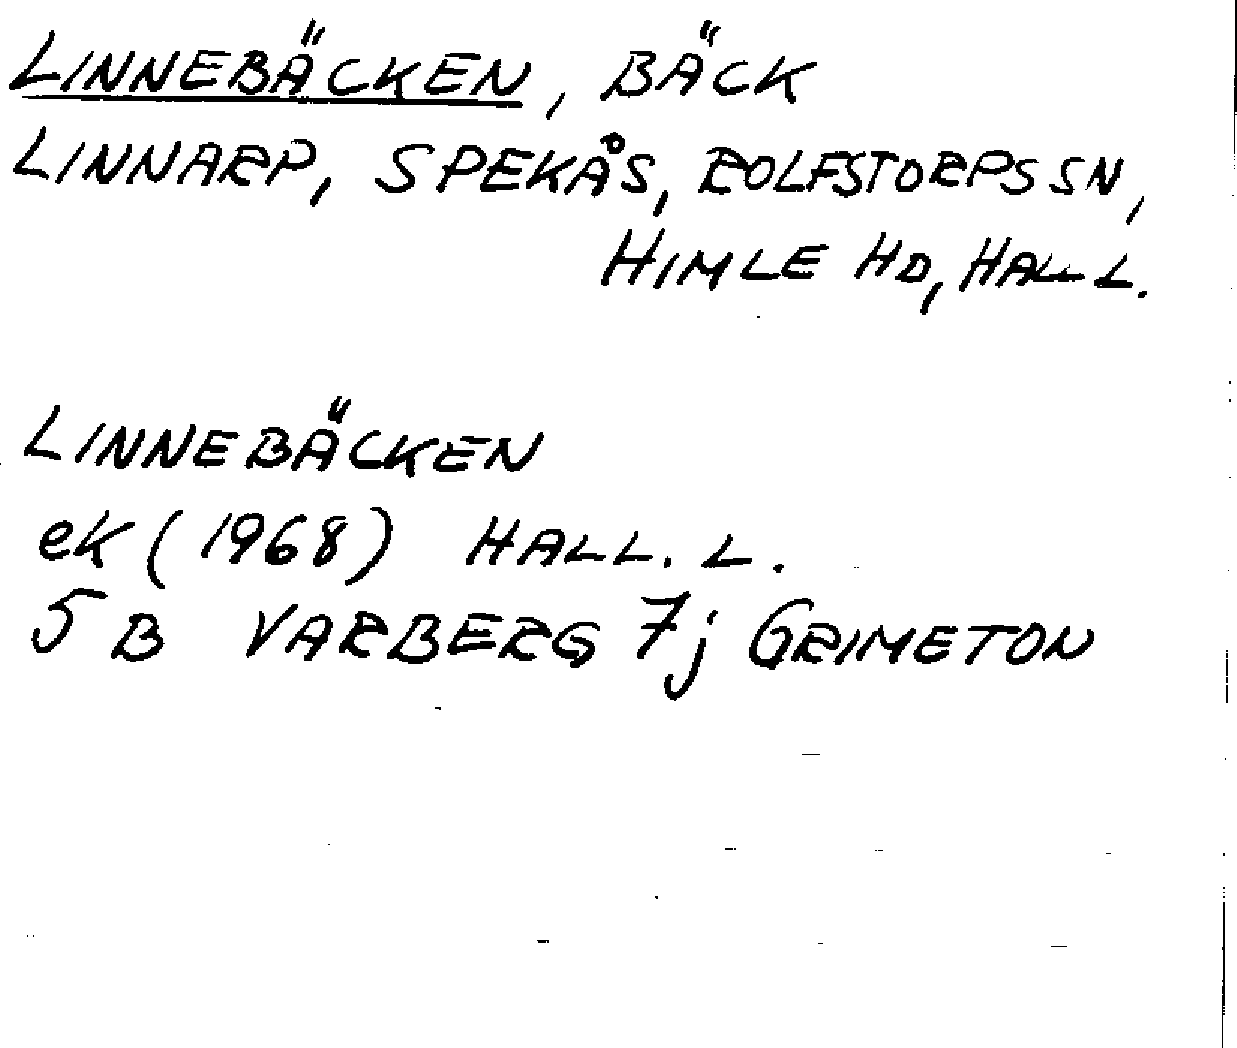 LINNEBÄCKEN, BÄCK
LINNARP, SPEKÅS, ROLFSTORPS SN,
HIMLE HD, HALL L.
LINNEBÄCKEN
eK (1968) HALL. L.
5 B VARBERG 7j GRIMETON